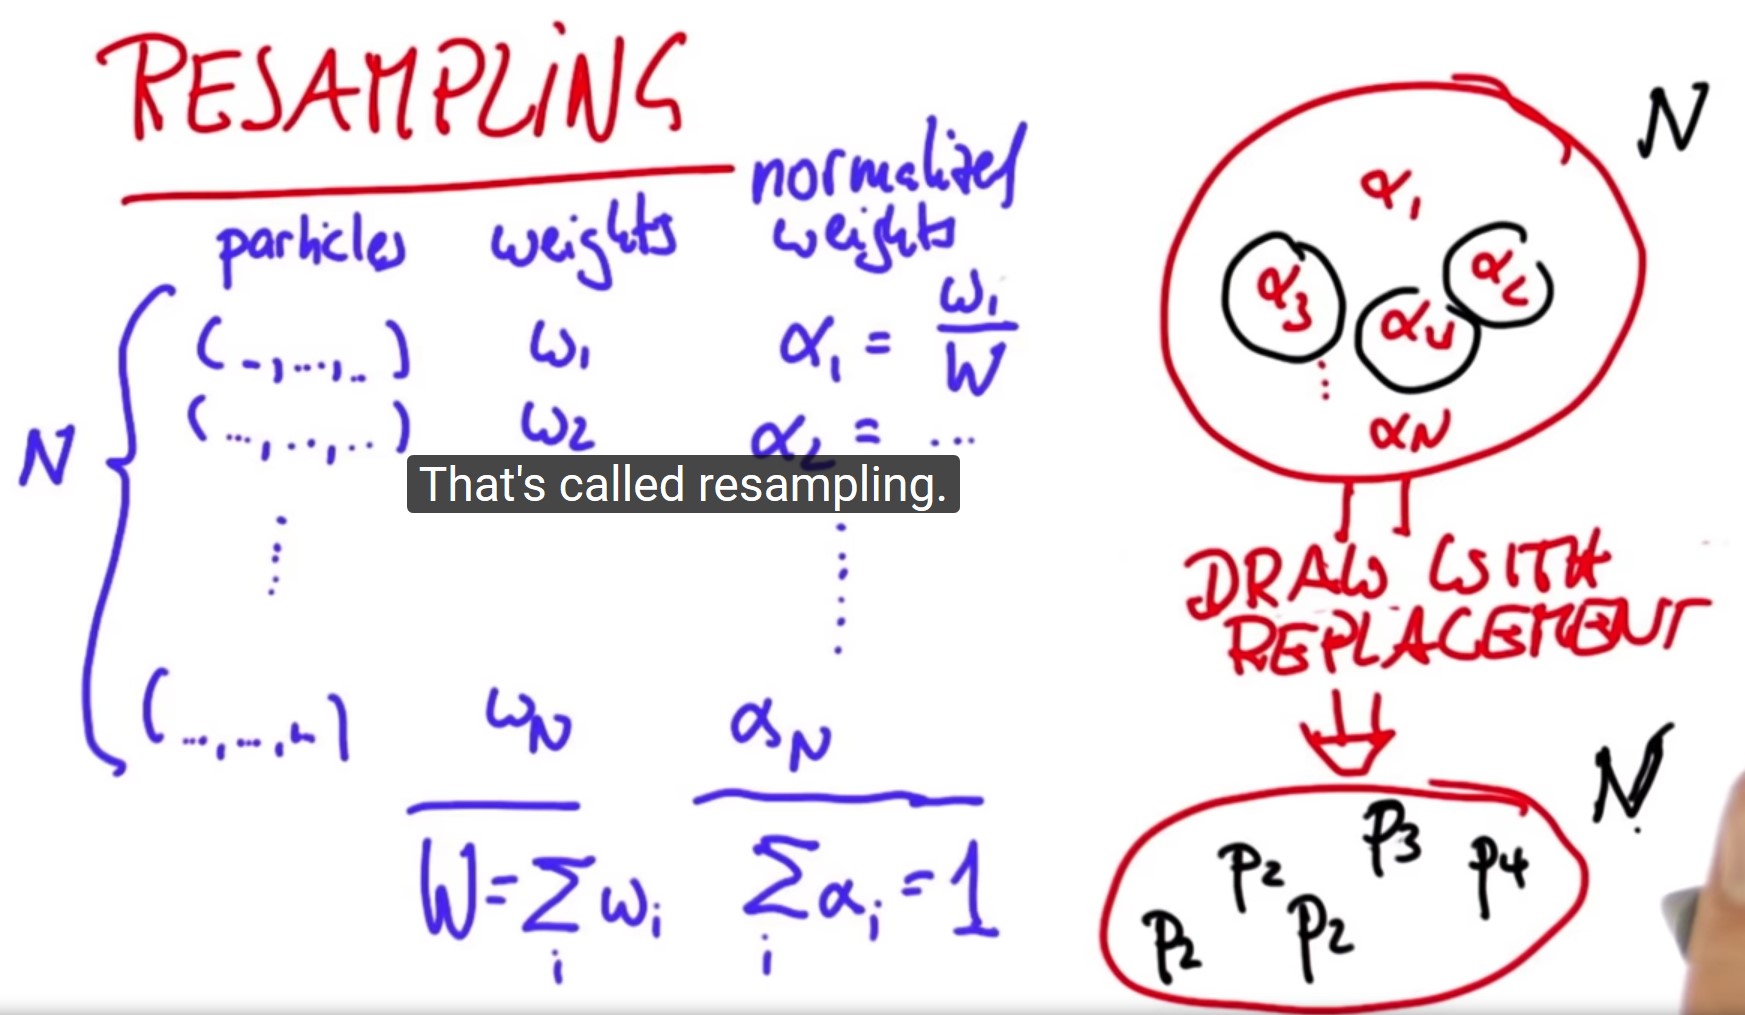 RESAMPLING
particles weights normalized weights
N
(..,...,..) ω₁ α₁ = ω₁/W
(...,...,...) ω₂ α₂ = ...
That's called resampling.
(...,...,...) ω_N α_N
W = Σ_i ω_i Σ_i α_i = 1
N
α₁
α₃ α₄ α₂
α_N
DRAW WITH
REPLACEMENT
N
p₂ p₃ p₄
p₂ p₂